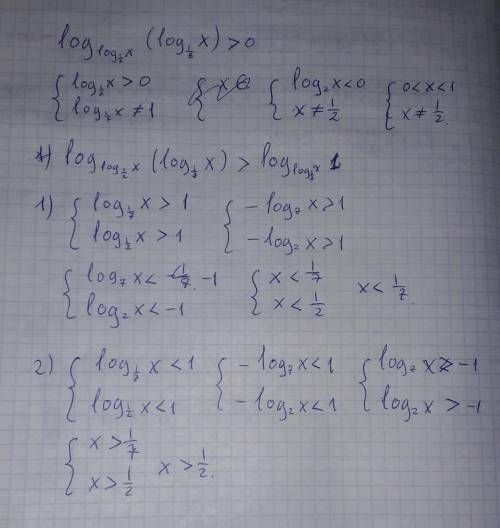 log_{log_{1/2}x} (log_{1/7}x) > 0
{ log_{1/2}x > 0 { { log₂x < 0 { 0 < x < 1
{ log_{1/2}x ≠ 1 { { x ≠ 1/2 { x ≠ 1/2.
log_{log_{1/2}x} (log_{1/7}x) > log_{log_{1/2}x} 1
1) { log_{1/7}x > 1 { -log₇x > 1
{ log_{1/2}x > 1 { -log₂x > 1
{ log₇x < -1 { x < 1/7 x < 1/7.
{ log₂x < -1 { x < 1/2
2) { log_{1/7}x < 1 { -log₇x < 1 { log₇x > -1
{ log_{1/2}x < 1 { -log₂x < 1 { log₂x > -1
{ x > 1/7 x > 1/2.
{ x > 1/2